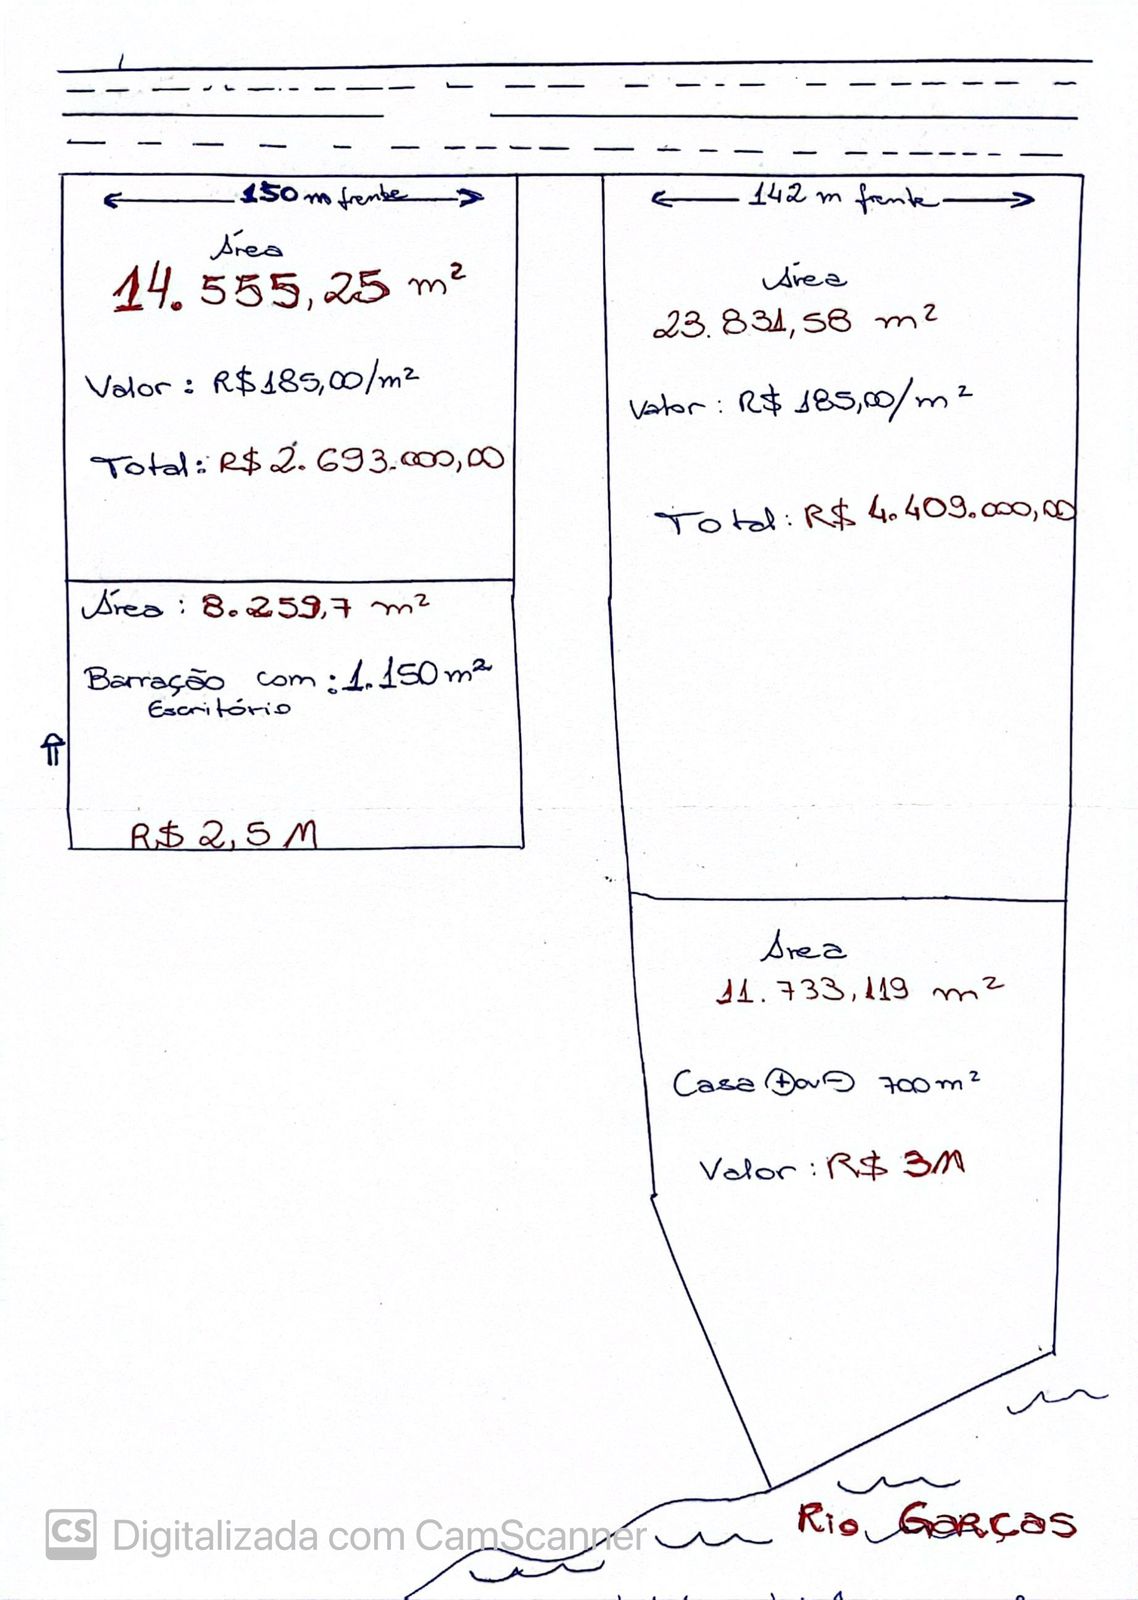 150 m frente
Área
14.555,25 m²
Valor: R$185,00/m²
Total: R$ 2.693.000,00
Área: 8.259,7 m²
Barração com: 1.150 m²
Escritório
R$ 2,5 M
142 m frente
Área
23.831,58 m²
Valor: R$ 185,00/m²
Total: R$ 4.409.000,00
Área
11.733,119 m²
Casa + ou - 700 m²
Valor: R$ 3M
Rio Garças
CS Digitalizada com CamScanner